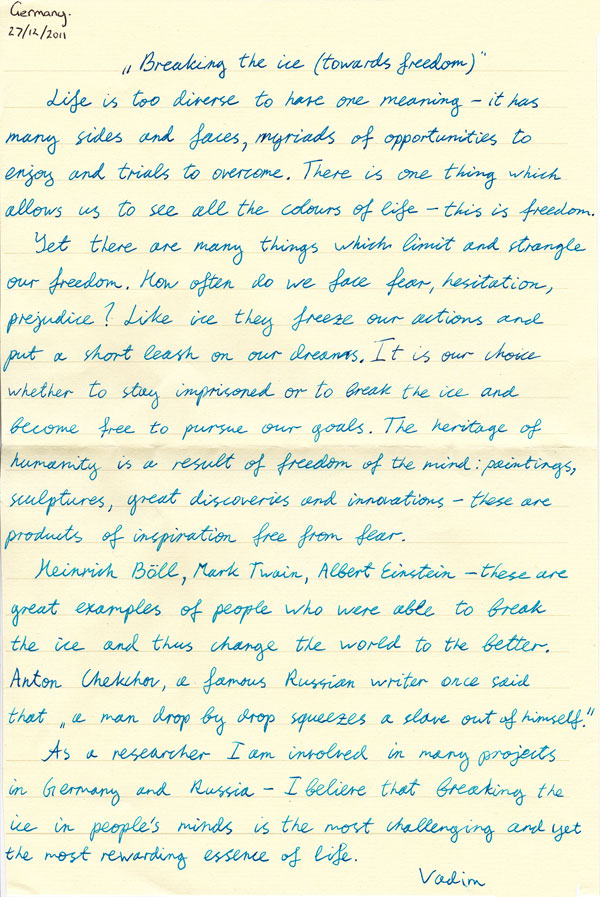 Germany.
27/12/2011
„Breaking the ice (towards freedom)"
Life is too diverse to have one meaning – it has
many sides and faces, myriads of opportunities to
enjoy and trials to overcome. There is one thing which
allows us to see all the colours of life – this is freedom.
Yet there are many things which limit and strangle
our freedom. How often do we face fear, hesitation,
prejudice? Like ice they freeze our actions and
put a short leash on our dreams. It is our choice
whether to stay imprisoned or to break the ice and
become free to pursue our goals. The heritage of
humanity is a result of freedom of the mind: paintings,
sculptures, great discoveries and innovations – these are
products of inspiration free from fear.
Heinrich Böll, Mark Twain, Albert Einstein – these are
great examples of people who were able to break
the ice and thus change the world to the better.
Anton Chekchov, a famous Russian writer once said
that „a man drop by drop squeezes a slave out of himself."
As a researcher I am involved in many projects
in Germany and Russia – I believe that breaking the
ice in people's minds is the most challenging and yet
the most rewarding essence of life.
Vadim